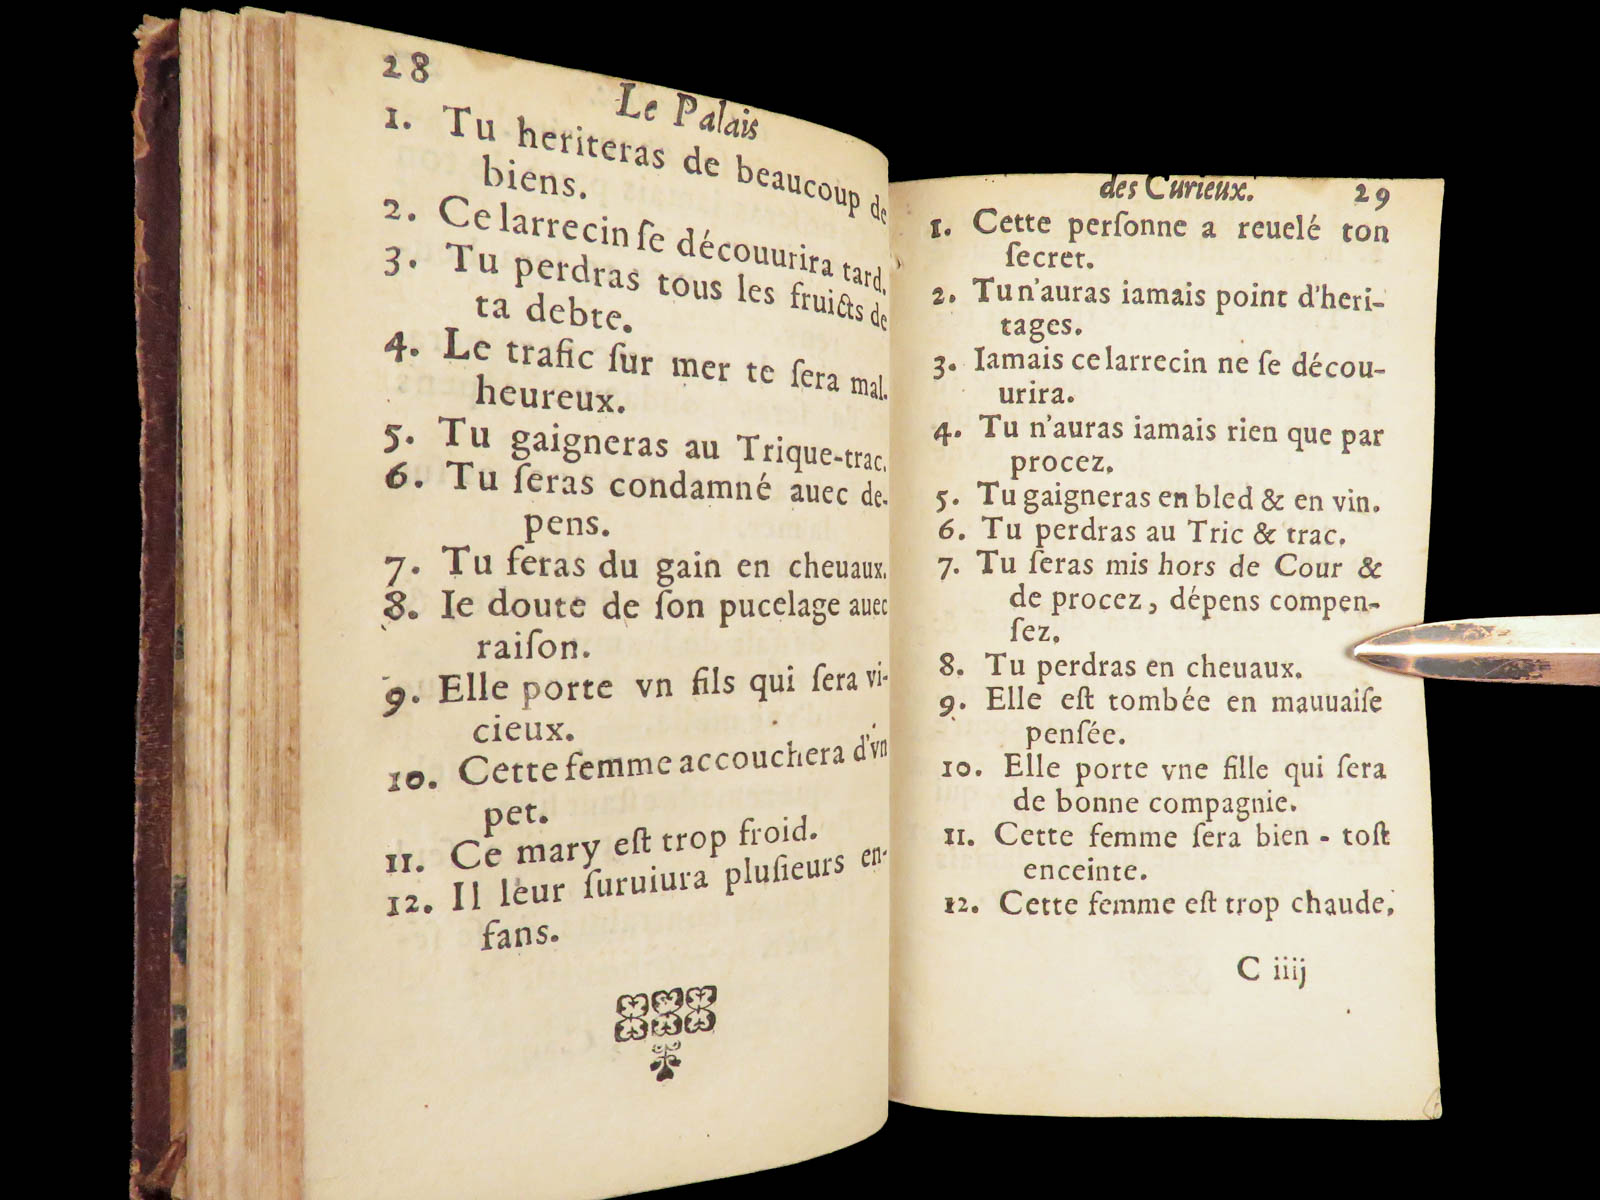 28
Le Palais
1. Tu heriteras de beaucoup de
biens.
2. Ce larrecin ſe découurira tard.
3. Tu perdras tous les fruicts de
ta debte.
4. Le trafic ſur mer te ſera mal-
heureux.
5. Tu gaigneras au Trique-trac.
6. Tu ſeras condamné auec de-
pens.
7. Tu feras du gain en cheuaux.
8. Ie doute de ſon pucelage auec
raiſon.
9. Elle porte vn fils qui ſera vi-
cieux.
10. Cette femme accouchera d'vn
pet.
11. Ce mary eſt trop froid.
12. Il leur ſuruiura pluſieurs en-
fans.
des Curieux. 29
1. Cette perſonne a reuelé ton
ſecret.
2. Tu n'auras iamais point d'heri-
tages.
3. Iamais ce larrecin ne ſe décou-
urira.
4. Tu n'auras iamais rien que par
procez.
5. Tu gaigneras en bled & en vin.
6. Tu perdras au Tric & trac.
7. Tu ſeras mis hors de Cour &
de procez, dépens compen-
ſez.
8. Tu perdras en cheuaux.
9. Elle eſt tombée en mauuaiſe
penſée.
10. Elle porte vne fille qui ſera
de bonne compagnie.
11. Cette femme ſera bien-toſt
enceinte.
12. Cette femme eſt trop chaude.
C iiij